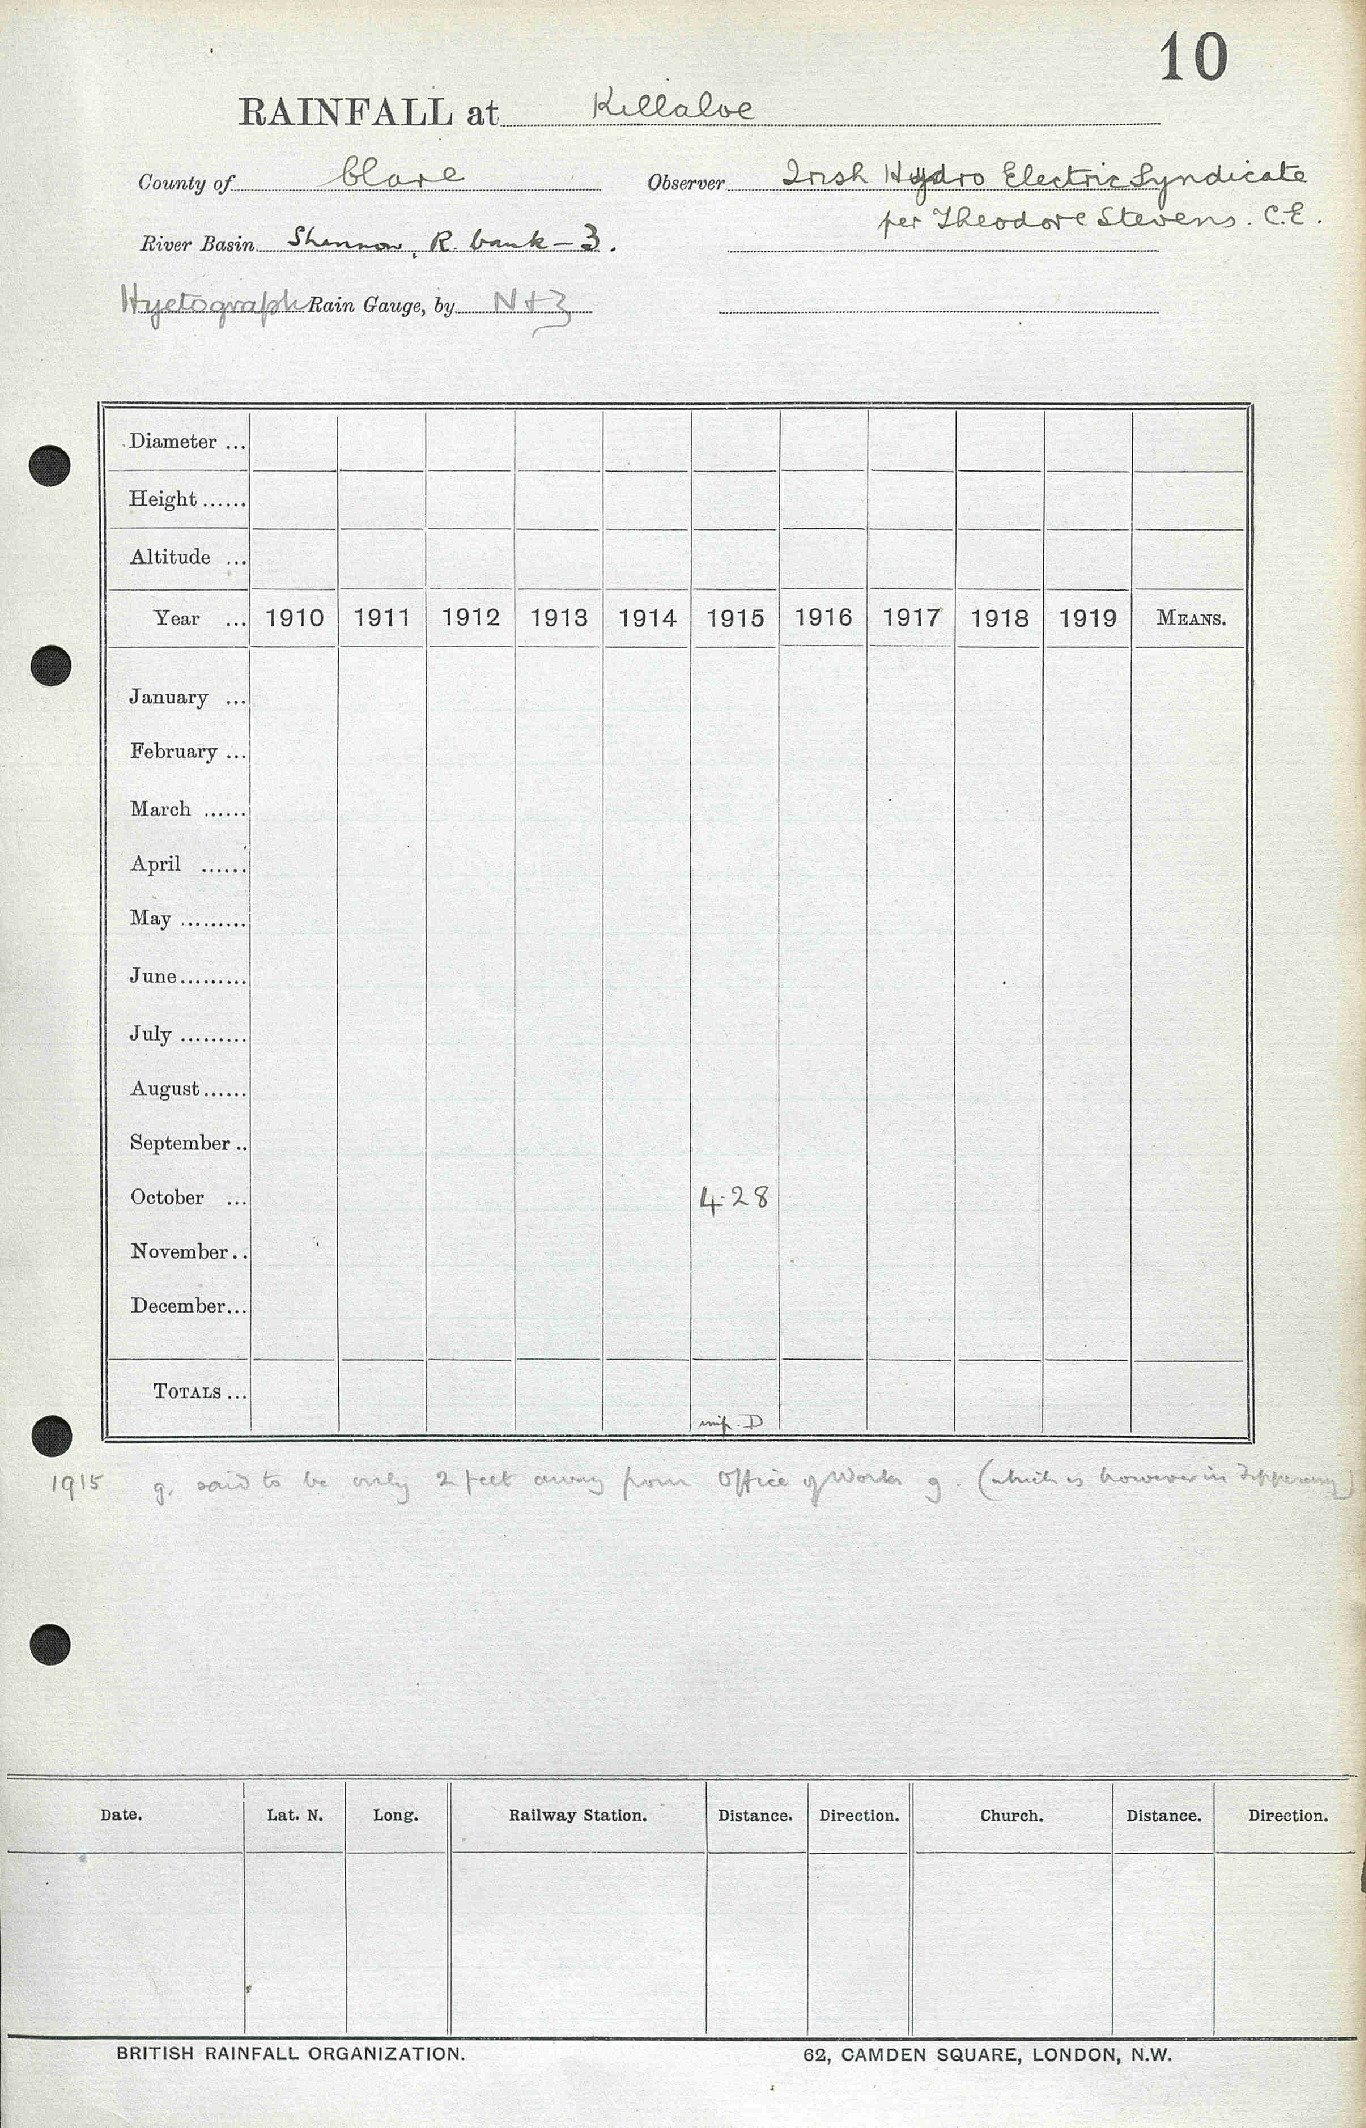 10
RAINFALL at Killaloe
County of Clare Observer Irish Hydro Electric Syndicate
per Theodore Stevens. C.E.
River Basin Shannon, R. bank - 3.
Hyetograph Rain Gauge, by N + Z
Diameter ...
Height ......
Altitude ...
Year ... 1910 1911 1912 1913 1914 1915 1916 1917 1918 1919 MEANS.
January ...
February ...
March ......
April ......
May .........
June.........
July .........
August......
September ..
October ... 4.28
November..
December...
TOTALS ...
D
1915 g. said to be only 2 feet away from Office of Works g. (which is however in Tipperary)
Date. Lat. N. Long. Railway Station. Distance. Direction. Church. Distance. Direction.
BRITISH RAINFALL ORGANIZATION. 62, CAMDEN SQUARE, LONDON, N.W.